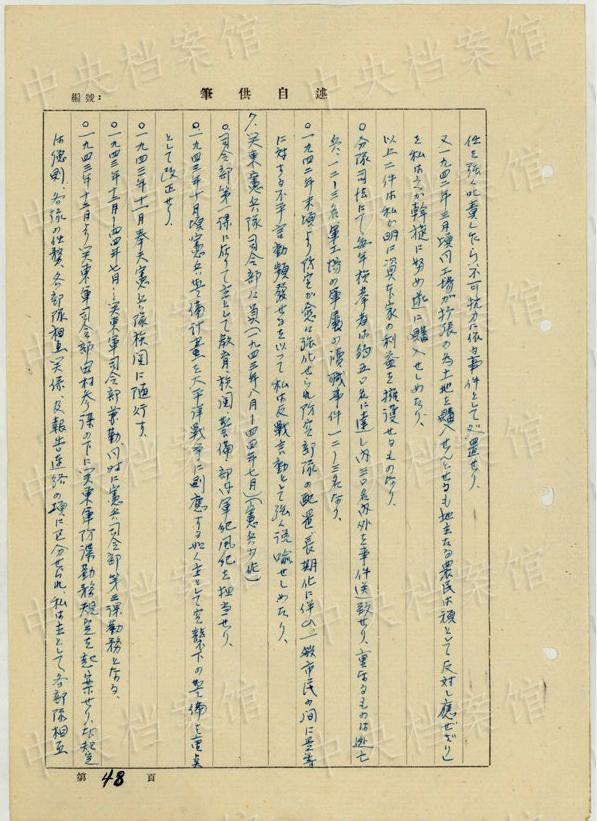 編號:
筆供自述
任を強く叱責したら、不可抗力に依る事件として処置せり。
又一九四二年三月頃同工場が拡張の為土地を購入せんとせるも地主たる農民は頑として反対し應ぜざり
を私は之が斡旋に努め遂に購入せしめたり。
以上二件は私が明に資本家の利益を擁護せるものなり。
〇分隊司法にて毎年検挙者は約五〇名に達し内三〇名内外を事件送致せり、重なるものは逃亡
兵、一二―三名軍工場の軍属の瀆職事件、一二―三名なり。
〇一九四二年末頃より防空が愈は強化せられ防空部隊の配置長期化に伴ひ一般市民の間に
に対する不平言動頻発せるを以って私は反戦言動として強く説諭せしめたり、
7.関東憲兵隊司令部々員(一九四三年八月―四四年七月)(憲兵少佐)
〇司令部第一課に在りて主として教育、検閲、警備、部内軍紀風紀を担当せり、
〇一九四三年十月頃憲兵警備計畫を太平洋戦争に則應する如く主として空襲下の警備を重点
として改正せり。
〇一九四三年十一月奉天憲兵隊検閲に随行す、
〇一九四三年十二月―四四年七月―関東軍司令部兼勤、同時に憲兵司令部第三課勤務となる、
〇一九四三年十二月より関東軍司令部田村参謀の下に「関東軍防諜勤務規定」を起案せり、本規定
は總則、各隊の任務、各部隊相互関係、及報告連絡の項に区分せられ、私は主として各部隊相互
第 48 頁